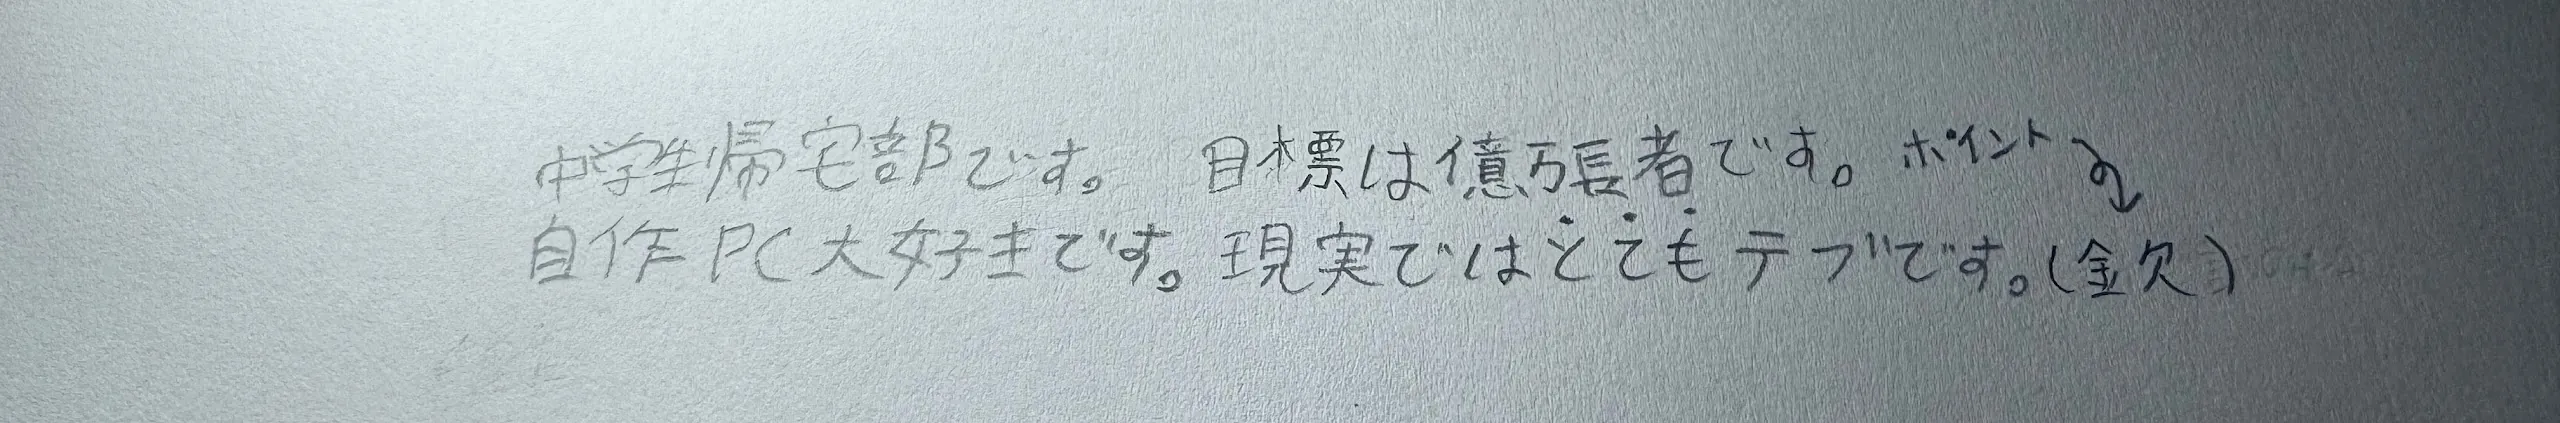 中学生帰宅部です。 目標は億万長者です。 ポイント
自作PC大好きです。現実ではとてもデブです。(金欠)